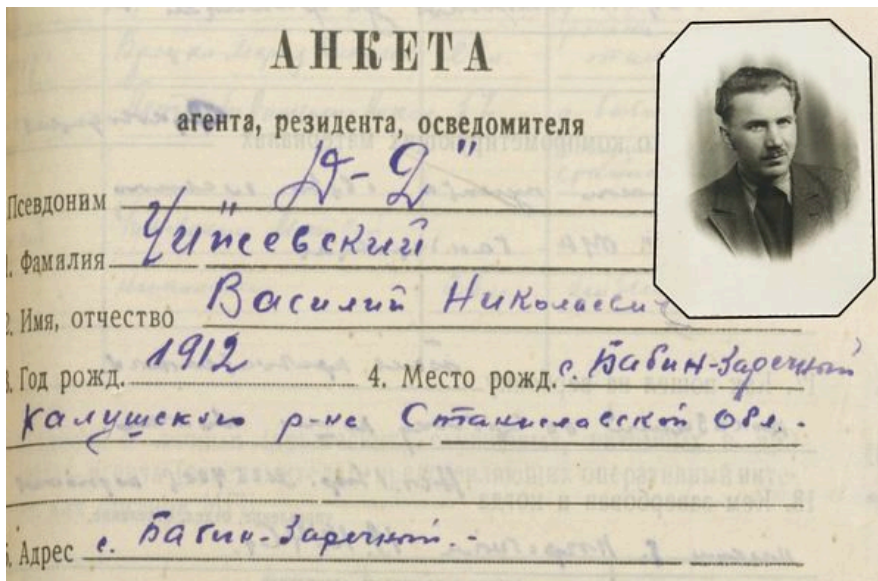 АНКЕТА
агента, резидента, осведомителя
Псевдоним
1. Фамилия Чижевский
2. Имя, отчество Василий Николаевич
3. Год рожд. 1912 4. Место рожд. с. Бабин-Заречный
Калушского р-на Станиславской обл.-
5. Адрес с. Бабин-Заречный.-